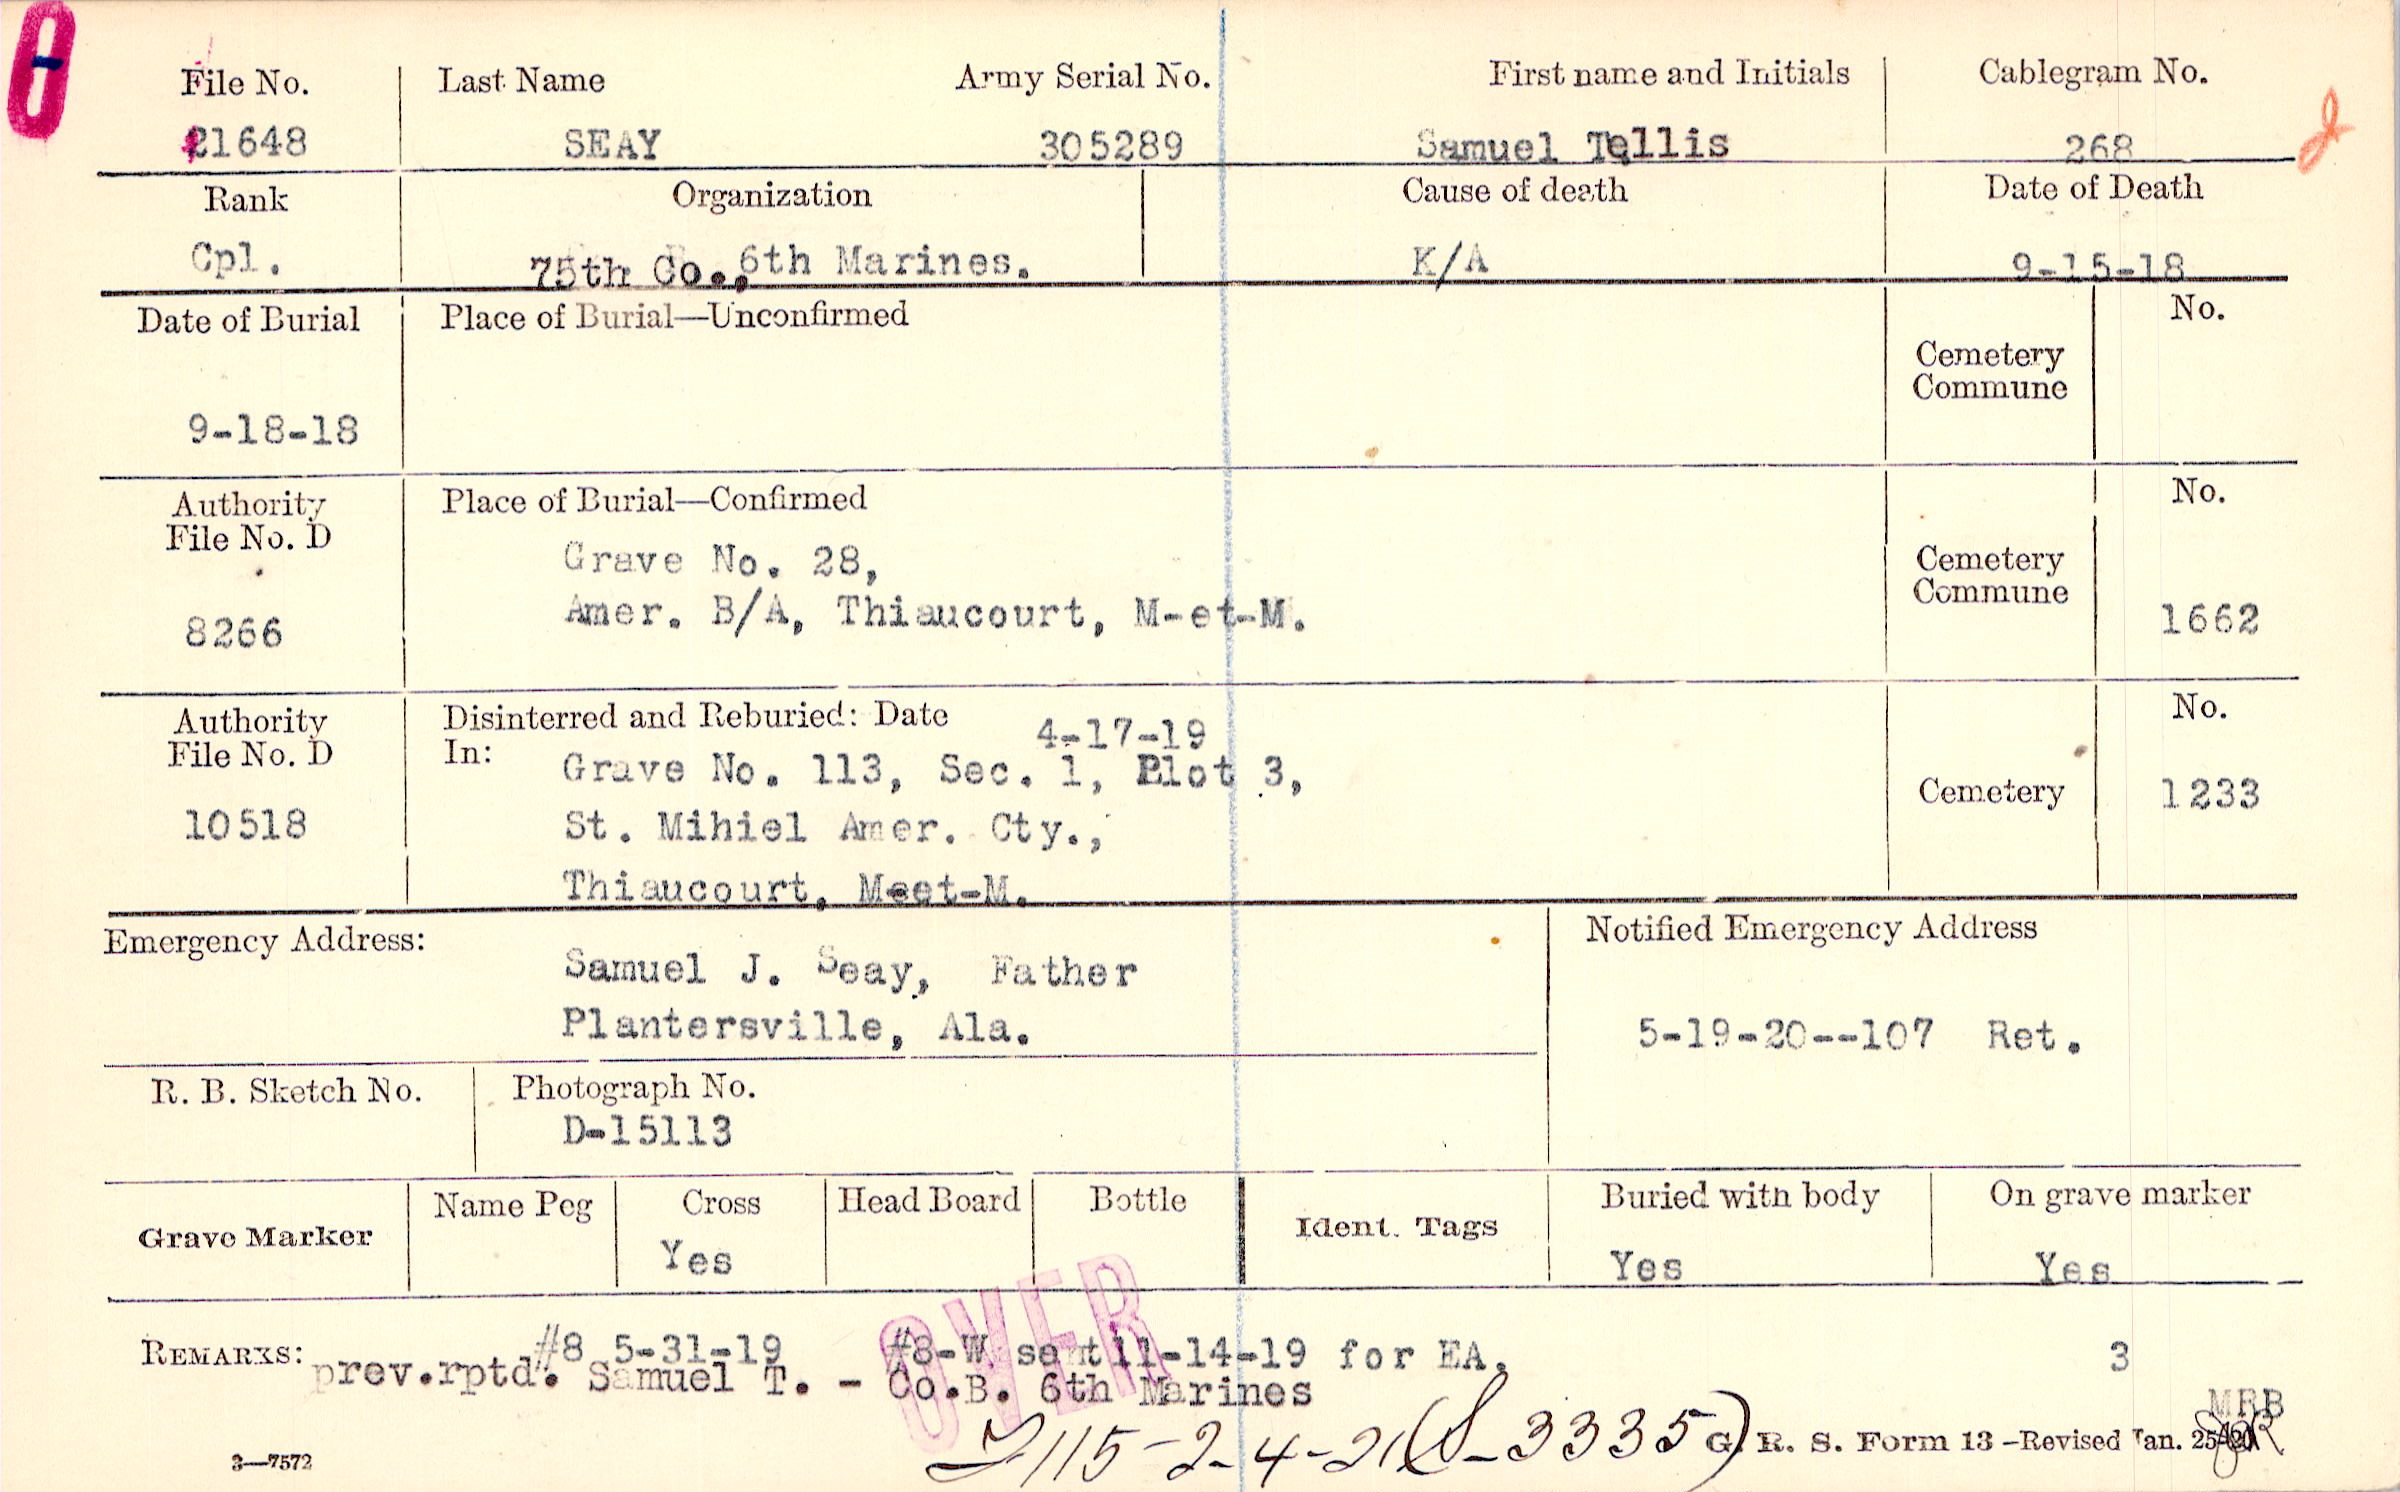 File No. Last Name Army Serial No. First name and Initials Cablegram No.
21648 SEAY 305289 Samuel Tellis 268
Rank Organization Cause of death Date of Death
Cpl. 75th Co., 6th Marines. K/A 9-15-18
Date of Burial Place of Burial—Unconfirmed No.
Cemetery
Commune
9-18-18
Authority Place of Burial—Confirmed No.
File No. D
Grave No. 28, Cemetery
Commune
8266 Amer. B/A, Thiaucourt, M-et-M. 1662
Authority Disinterred and Reburied: Date 4-17-19 No.
File No. D In: Grave No. 113, Sec. 1, Plot 3,
Cemetery 1233
10518 St. Mihiel Amer. Cty.,
Thiaucourt, Meet-M.
Emergency Address: Notified Emergency Address
Samuel J. Seay, Father
Plantersville, Ala. 5-19-20--107 Ret.
R. B. Sketch No. Photograph No.
D-15113
Grave Marker Name Peg Cross Head Board Bottle Ident. Tags Buried with body On grave marker
Yes Yes Yes
OVER
REMARKS: #8 5-31-19 #8-W sent 11-14-19 for EA. 3
prev.rptd. Samuel T. - Co.B. 6th Marines
MRB
115-2-4-21 (S-3335)
3—7572 G. R. S. Form 13-Revised Jan. 25-20